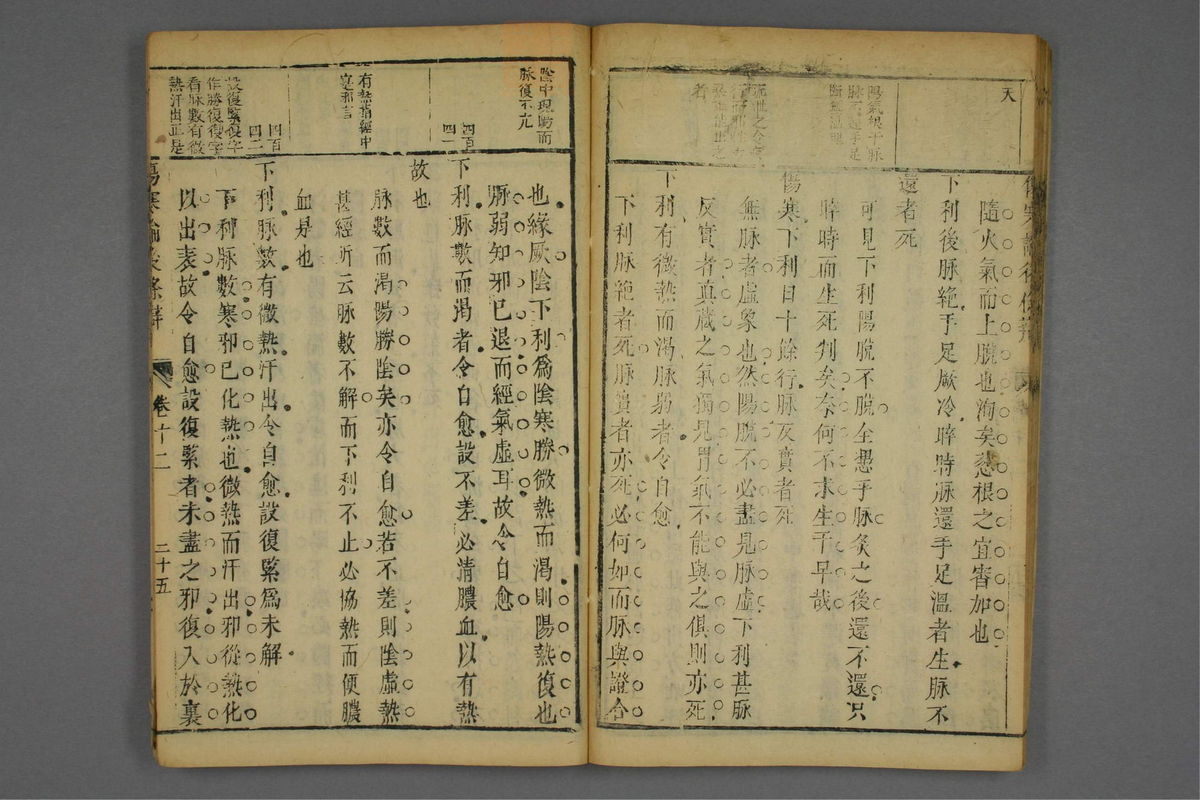 天
陽氣絕于脉
還者死
隨火氣而上脫也洵矣慈根之宜審加也
下利後脉絶手足厥冷晬時脉還手足溫者生脉不
還者死
可見下利陽脫不脫全憑乎脉灸之後還不還只
晬時而生死判矣奈何不求生于早哉
傷寒下利日十餘行脉反實者死
無脉者虛象也然陽脫不必盡見脉虛下利甚脉
反實者真藏之氣獨見胃氣不能與之俱則亦死
下利有微熱而渴脉弱者令自愈
下利脉絶者死脉實者亦死必何如而脉與證合
陰中現陽而
脉復不亢
也緣厥陰下利爲陰寒勝微熱而渴則陽熱復也
脉弱知邪已退而經氣虛耳故令自愈
四百
四一
下利脉數而渴者令自愈設不差必清膿血以有熱
故也
有熱指經中
寔邪言
脉數而渴陽勝陰矣亦令自愈若不差則陰虛熱
甚經所云脉數不解而下利不止必協熱而便膿
血是也
四百
四二
下利脉數有微熱汗出令自愈設復緊爲未解
設復緊復字
作勝復復字
看脉數有微
熱汗出正是
下利脉數寒邪已化熱也微熱而汗出邪從熱化
以出表故令自愈設復緊者未盡之邪復入於裏
傷寒論後條辨
卷十二
二十五